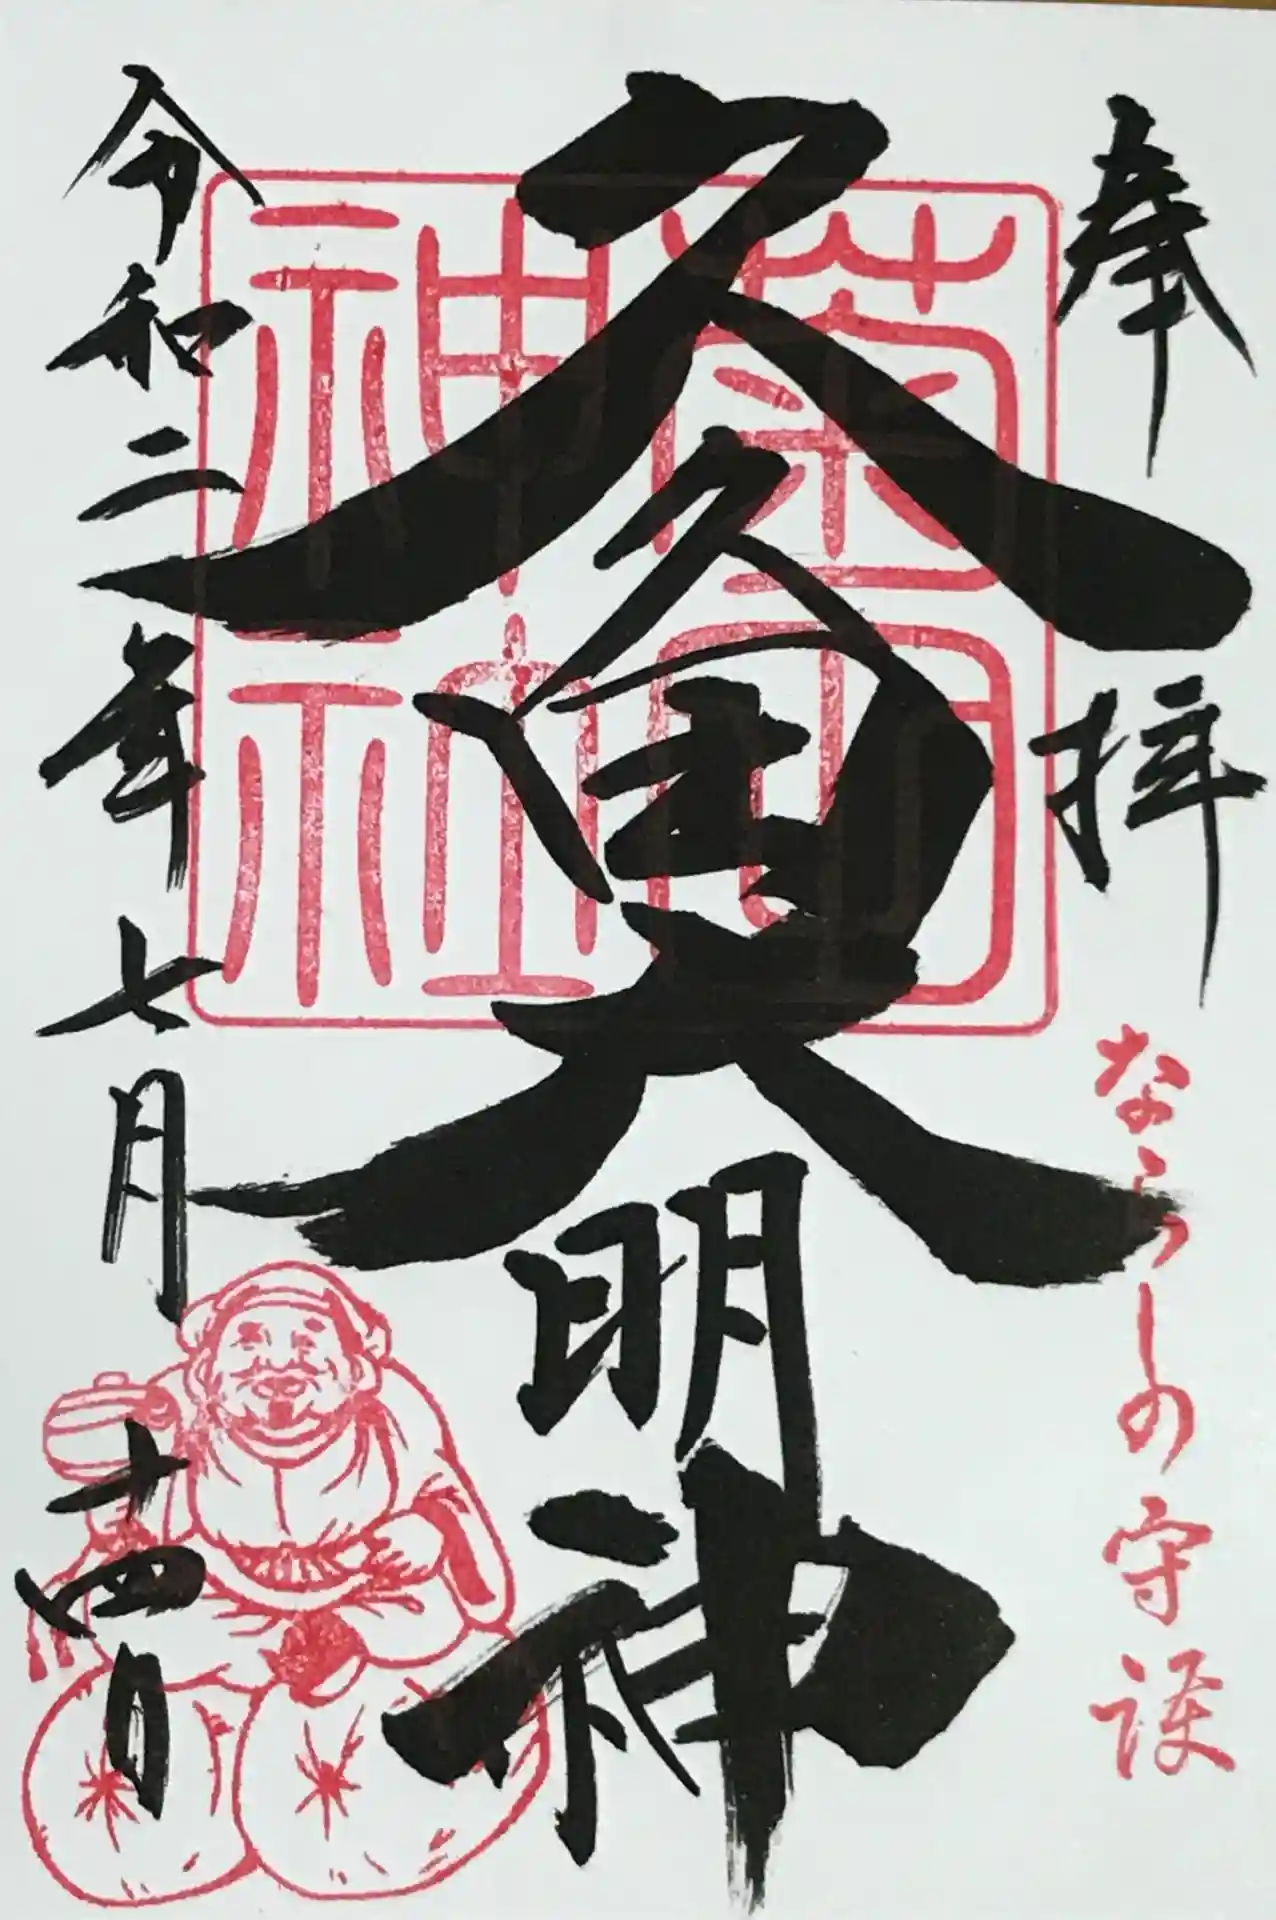 奉拝
ならしの守護
久久田大明神
菊田
神社
令和二年七月十四日